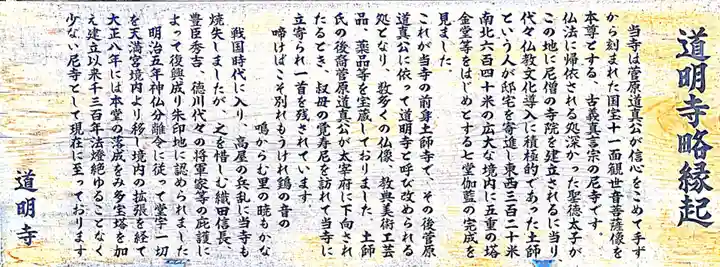 道明寺略縁起
当寺は菅原道真公が信心をこめて手ず
から刻まれた国宝十一面観世音菩薩像を
本尊とする、古義真言宗の尼寺です。
仏法に帰依される処深かった聖徳太子が
この地に尼僧の寺院を建立されるに当り
代々仏教文化導入に積極的であった土師
という人が邸宅を寄進し東西三百二十米
南北六百四十米の広大な境内に五重の塔
金堂等をはじめとする七堂伽藍の完成を
見ました
これが当寺の前身土師寺で、その後菅原
道真公に依って道明寺と呼び改められる
処となり、数多くの仏像、教典美術工芸
品、薬品等を宝蔵しておりました 土師
氏の後裔菅原道真公が太宰府に下向され
たるとき、叔母の覚寿尼を訪れて当寺に
立寄られ一首を残されています
啼けばこそ別れもうけれ鶏の音の
鳴からむ里の暁もかな
戦国時代に入り、高屋の兵乱に当寺も
焼失しましたが、之を惜しむ織田信長、
豊臣秀吉、徳川代々の将軍家等の庇護に
よって復興成り朱印地に認められました
明治五年神仏分離令に従って堂宇一切
を天満宮境内より移し境内の拡張を経て
大正八年には本堂の落成をみ多宝塔を加
え建立以来千三百年法燈絶ゆることなく
少ない尼寺として現在に至っております
道明寺